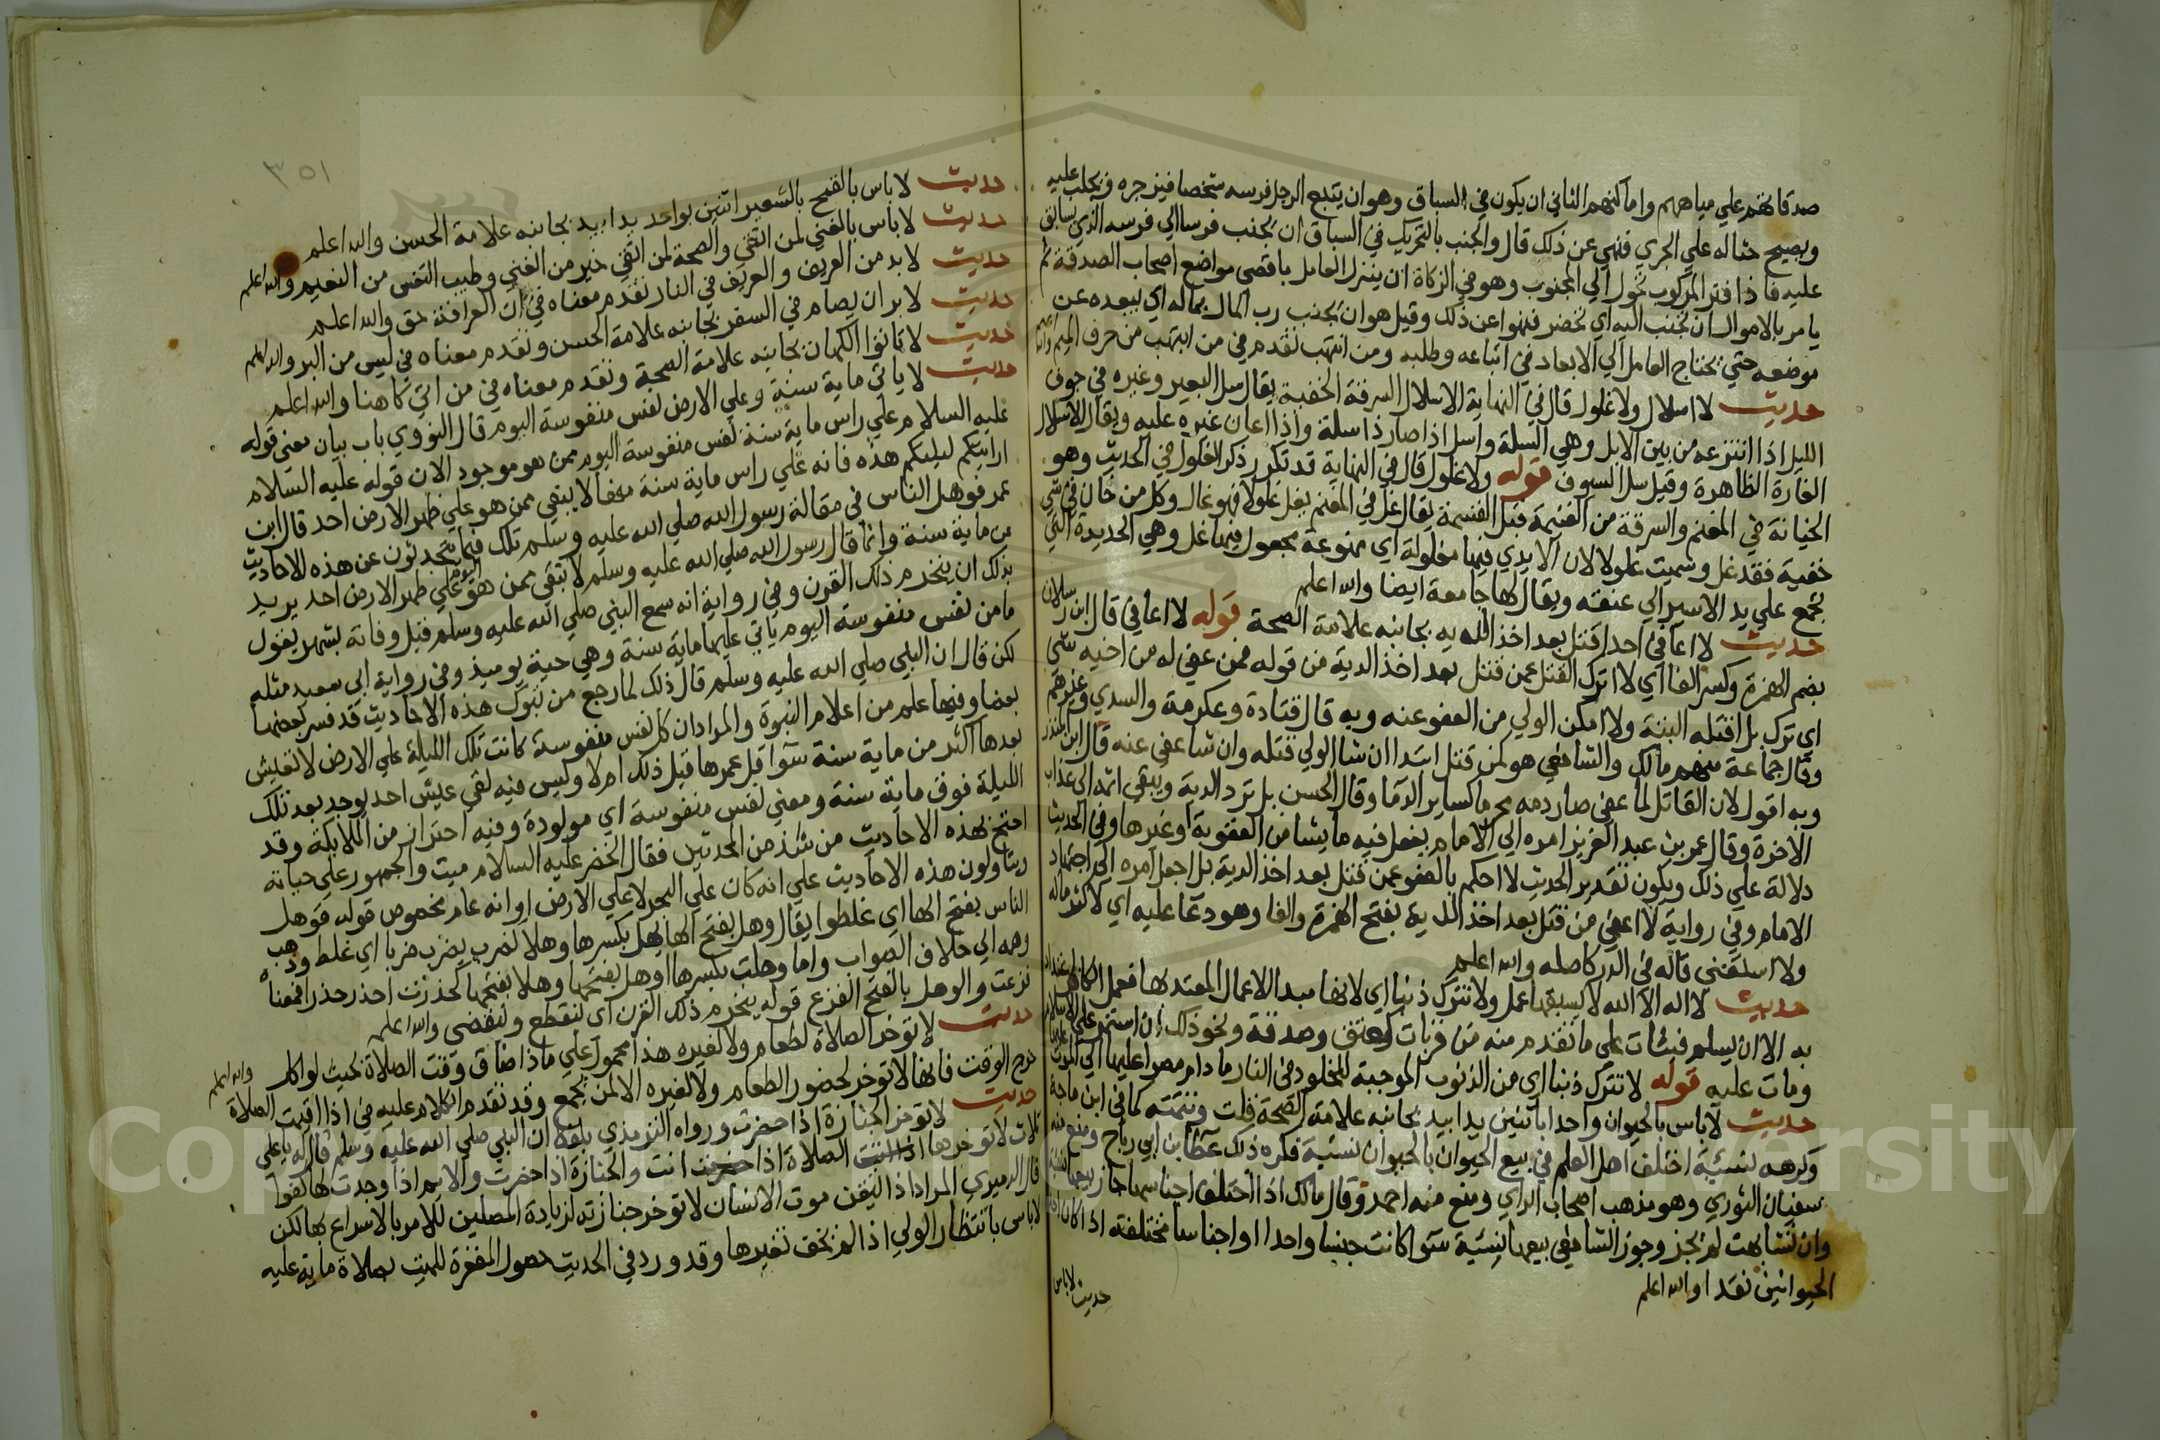 صدقاتهم علي مياههم واماكنهم الثاني ان يكون في السباق وهو ان يتبع الرجل فرسه شخصا فيزجره ويجلب عليه
ويصيح حثاله علي الجري فنهي عن ذلك قال والجنب بالتحريك في السباق ان يجنب فرسا الي فرسه الذي يسابق
عليه فاذا فتر المركوب تحول الي المجنوب وهو في الزكاة ان ينزل العامل باقصي مواضع اصحاب الصدقة ثم
يامر بالاموال ان تجنب اليه اي تحضر فنهوا عن ذلك وقيل هو ان يجنب رب المال بماله اي يبعده عن
موضعه حتي يحتاج العامل الي الابعاد في اتباعه وطلبه ومن انتهب تقدم في من انتهب من حرف الميم والله اعلم
حديث لا اسلال ولا غلول قال في النهاية الاسلال السرقة الخفية يقال سل البعير وغيره في جوف
الليل اذا انتزعه من بين الابل وهي السلة واسل اذا صار ذا سلة واذا اعان غيره عليه ويقال الاسلال
الغارة الظاهرة وقيل سل السيوف قوله ولا غلول قال في النهاية قد تكرر ذكر الغلول في الحديث وهو
الخيانة في المغنم والسرقة من الغنيمة قبل القسمة يقال غل في المغنم يغل غلولا فهو غال وكل من خان في شي
خفية فقد غل وسميت غلولا لان الايدي فيها مغلولة اي ممنوعة مجعول فيها غل وهي الحديدة التي
تجمع علي يد الاسير الي عنقه ويقال لها جامعة ايضا والله اعلم
حديث لا اعافي احدا قتل بعد اخذ الديه بجانبه علامة الصحة قوله لا اعافي قال ابن رسلان
بضم الهمزة وكسر الفا اي لا اترك القتل عمن قتل بعد اخذ الدية من قوله فمن عفي له من اخيه شي
اي ترك بل اقتله البتة ولا امكن الولي من العفو عنه وبه قال قتادة وعكرمة والسدي وغيرهم
وقال جماعة منهم مالك والشافعي هو كمن قتل ابتدا ان شا الولي قتله وان شا عفي عنه قال ابن المنذر
وبه اقول لان القاتل لما عفي صار دمه محرما كساير الدما وقال الحسن بل ترد الدية ويبقي اثمه الي عذاب
الاخرة وقال عمر بن عبد العزيز امره الي الامام يفعل فيه ما يشا من العقوبة او غيرها وفي الحديث
دلالة علي ذلك ويكون تقدير الحديث لا احكم بالعفو عمن قتل بعد اخذ الدية بل اجعل امره الي اجتهاد
الامام وفي رواية لا اعفي من قتل بعد اخذ الدية بفتح الهمزة والفا وهو دعا عليه اي لا كثر ماله
ولا استغني قاله في الدر كاصله والله اعلم
حديث لا اله الا الله لا يسبقها عمل ولا تترك ذنبا اي لانها مبدا الاعمال المعتد بها فعمل الكافر
به الا ان يسلم فيثاب علي ما تقدم منه من قربات كعتق وصدقة ونحو ذلك ان استمر علي الاسلام
ومات عليه قوله لا تترك ذنبا اي من الذنوب الموجبة للخلود في النار ما دام مصرا عليها الي الموت
حديث لا باس بالحيوان واحدا باثنين يدا بيد بجانبه علامة الصحة قلت وتتمته كما في ابن ماجة
وكرهه نسيئة اختلف اهل العلم في بيع الحيوان بالحيوان نسيئة فكره ذلك عطا بن ابي رباح ومنع منه
سفيان الثوري وهو مذهب اصحاب الراي ومنع منه احمد وقال مالك اذا اختلف اجناسها جاز بيعها نسيئة
وان تشابهت لم يجز وجوز الشافعي بيعها نسيئة سوا كانت جنسا واحدا او اجناسا مختلفة اذا كان احد
الحيوانين نقدا والله اعلم
حديث لا باس
٣٥١
حديث لا باس بالقمح بالشعير اثنين بواحد يدا بيد بجانبه علامة الحسن والله اعلم
حديث لا باس بالغني لمن اتقي والصحة لمن اتقي خير من الغني وطيب النفس من النعيم والله اعلم
حديث لا بد من العريف والعريف في النار تقدم معناه في ان العرافة حق والله اعلم
حديث لا بر ان يصام في السفر بجانبه علامة الحسن وتقدم معناه في ليس من البر والله اعلم
حديث لا تاتوا الكهان بجانبه علامة الصحة وتقدم معناه في من اتي كاهنا والله اعلم
حديث لا ياتي ماية سنة وعلي الارض نفس منفوسة اليوم قال النووي باب بيان معني قوله
عليه السلام علي راس ماية سنة نفس منفوسة اليوم ممن هو موجود الان قوله عليه السلام
ارايتكم ليلتكم هذه فانه علي راس ماية سنة منها لا يبقي ممن هو علي ظهر الارض احد قال ابن
عمر فوهل الناس في مقالة رسول الله صلي الله عليه وسلم تلك فيما يتحدثون عن هذه الاحاديث
من ماية سنة وانما قال رسول الله صلي الله عليه وسلم لا يبقي ممن هو اليوم علي ظهر الارض احد يريد
بذلك ان ينخرم ذلك القرن وفي رواية انه سمع النبي صلي الله عليه وسلم قبل وفاته بشهر يقول
ما من نفس منفوسة اليوم ياتي عليها ماية سنة وهي حية يوميذ وفي رواية ابي سعيد مثله
لكن قال ان النبي صلي الله عليه وسلم قال ذلك لما رجع من تبوك هذه الاحاديث قد فسر بعضها
بعضا وفيها علم من اعلام النبوة والمراد ان كل نفس منفوسة كانت تلك الليلة علي الارض لا تعيش
بعدها اكثر من ماية سنة سوا قل عمرها قبل ذلك ام لا وليس فيه نفي عيش احد يوجد بعد تلك
الليلة فوق ماية سنة ومعني نفس منفوسة اي مولودة وفيه احتراز من الملايكة وقد
احتج بهذه الاحاديث من شذ من المحدثين فقال الخضر عليه السلام ميت والجمهور علي حياته
ويتاولون هذه الاحاديث علي انه كان علي البحر لا علي الارض او انه عام مخصوص قوله فوهل
الناس بفتح الها اي غلطوا يقال وهل بفتح الها يهل بكسرها وهلا كضرب يضرب ضربا اي غلط وذهب
وهمه الي خلاف الصواب واما وهلت بكسرها اوهل بفتحها وهلا بفتحها كحذرت احذر حذرا فمعناه
فزعت والوهل بالفتح الفزع قوله ينخرم ذلك القرن اي ينقطع وينقضي والله اعلم
حديث لا توخر الصلاة لطعام ولا لغيره هذا محمول علي ما اذا ضاق وقت الصلاة بحيث لو اكل
خرج الوقت فانها لا توخر لحضور الطعام ولا لغيره الا لمن يجمع وقد تقدم الكلام عليه في اذا اقيمت الصلاة والله اعلم
حديث لا توخر الجنازة اذا حضرت ورواه الترمذي بلفظ ان النبي صلي الله عليه وسلم قال له يا علي
ثلاث لا توخرها الصلاة اذا اتت والجنازة اذا حضرت والايم اذا وجدت لها كفوا
قال الدميري المراد اذا تيقن موت الانسان لا توخر جنازته لزيادة المصلين للامر بالاسراع بها لكن
لا باس بانتظار الولي اذا لم يخف تغيرها وقد ورد في الحديث حصول المغفرة للميت بصلاة ماية عليه